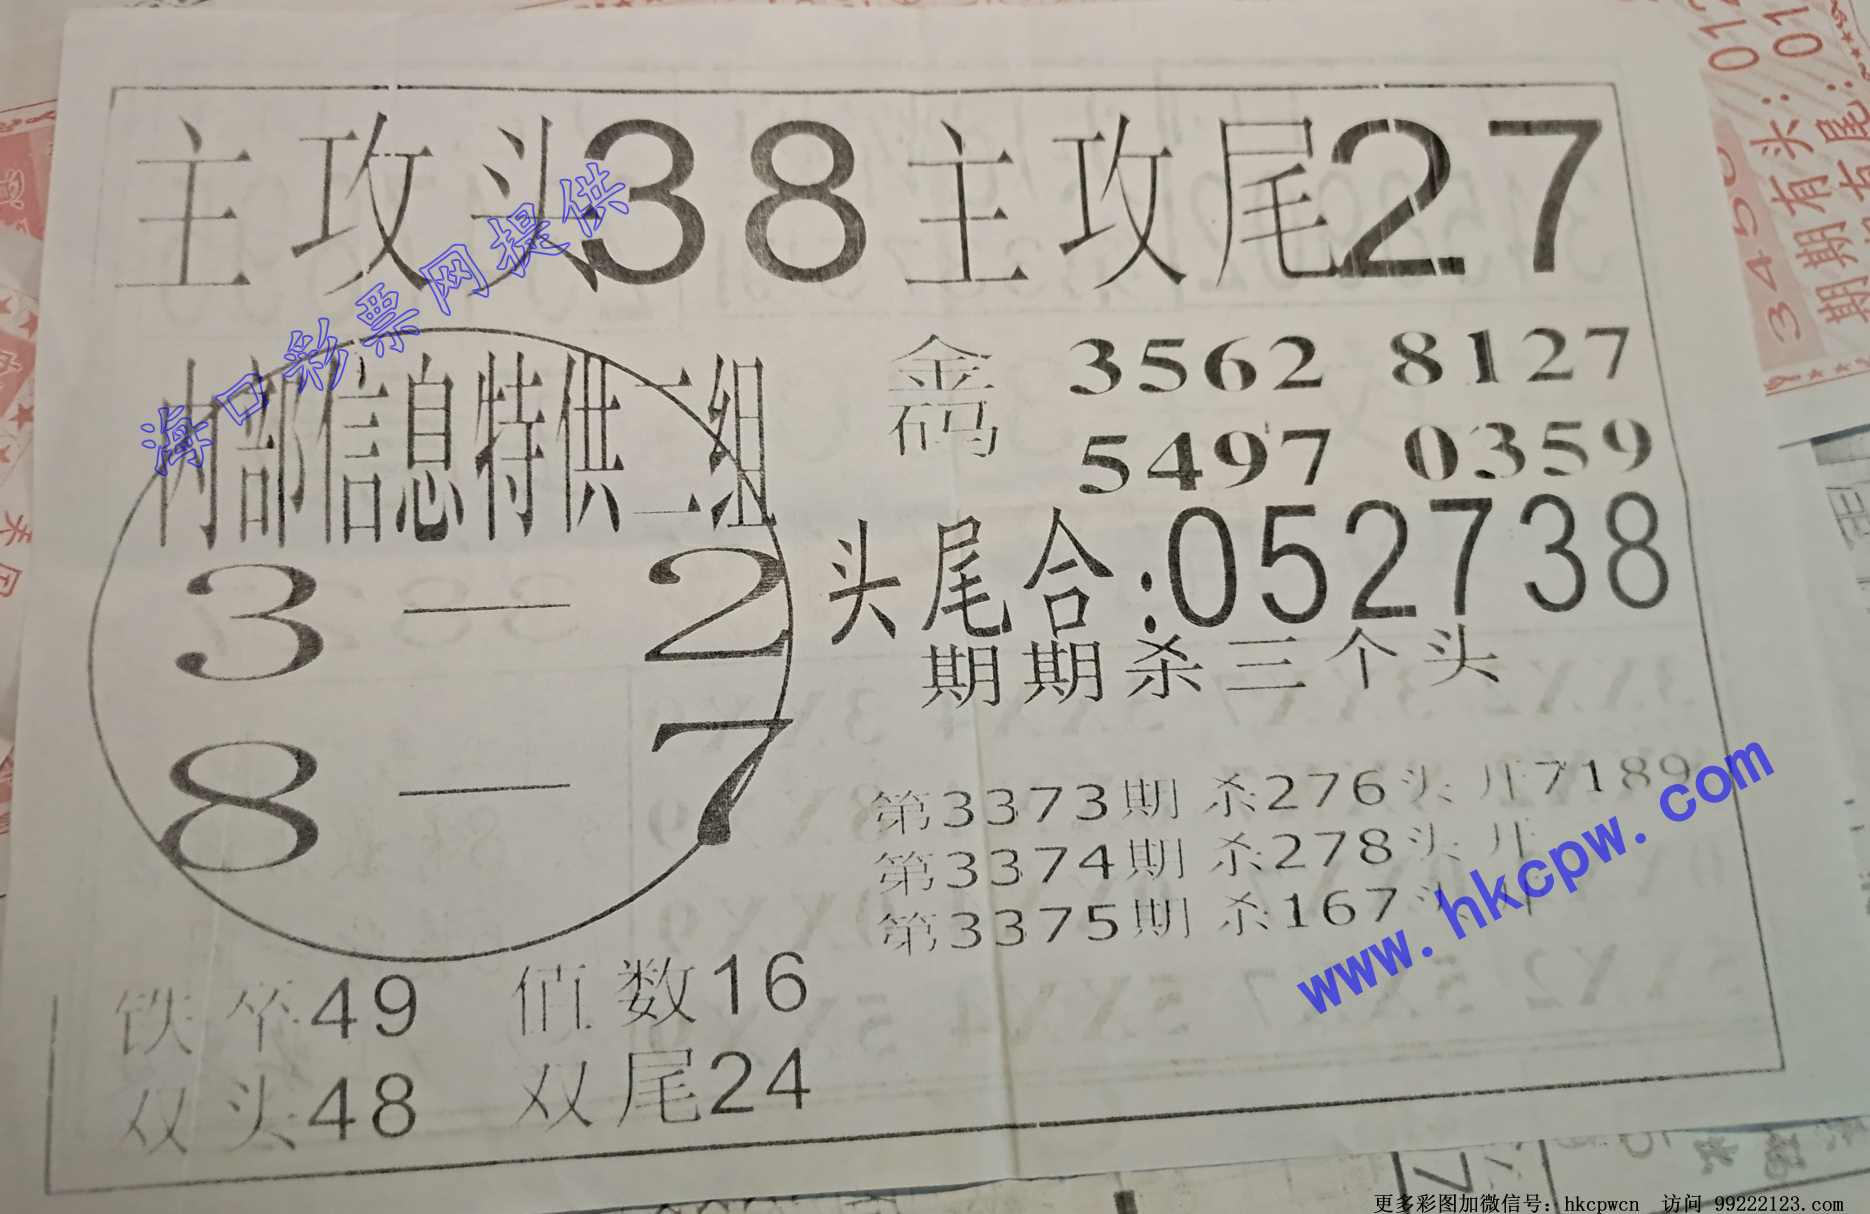 主攻头38主攻尾27
海口彩票网提供
内部信息特供二组
3—2
8—7
金码 3562 8127
5497 0359
头尾合:052738
期期杀三个头
第3373期 杀276头 开7189
第3374期 杀278头 开
第3375期 杀167头 开
www.hkcpw.com
铁卒49 值数16
双头48 双尾24
3450
期期有头:01
期期有尾:01
更多彩图加微信号:hkcpwcn 访问 99222123.com